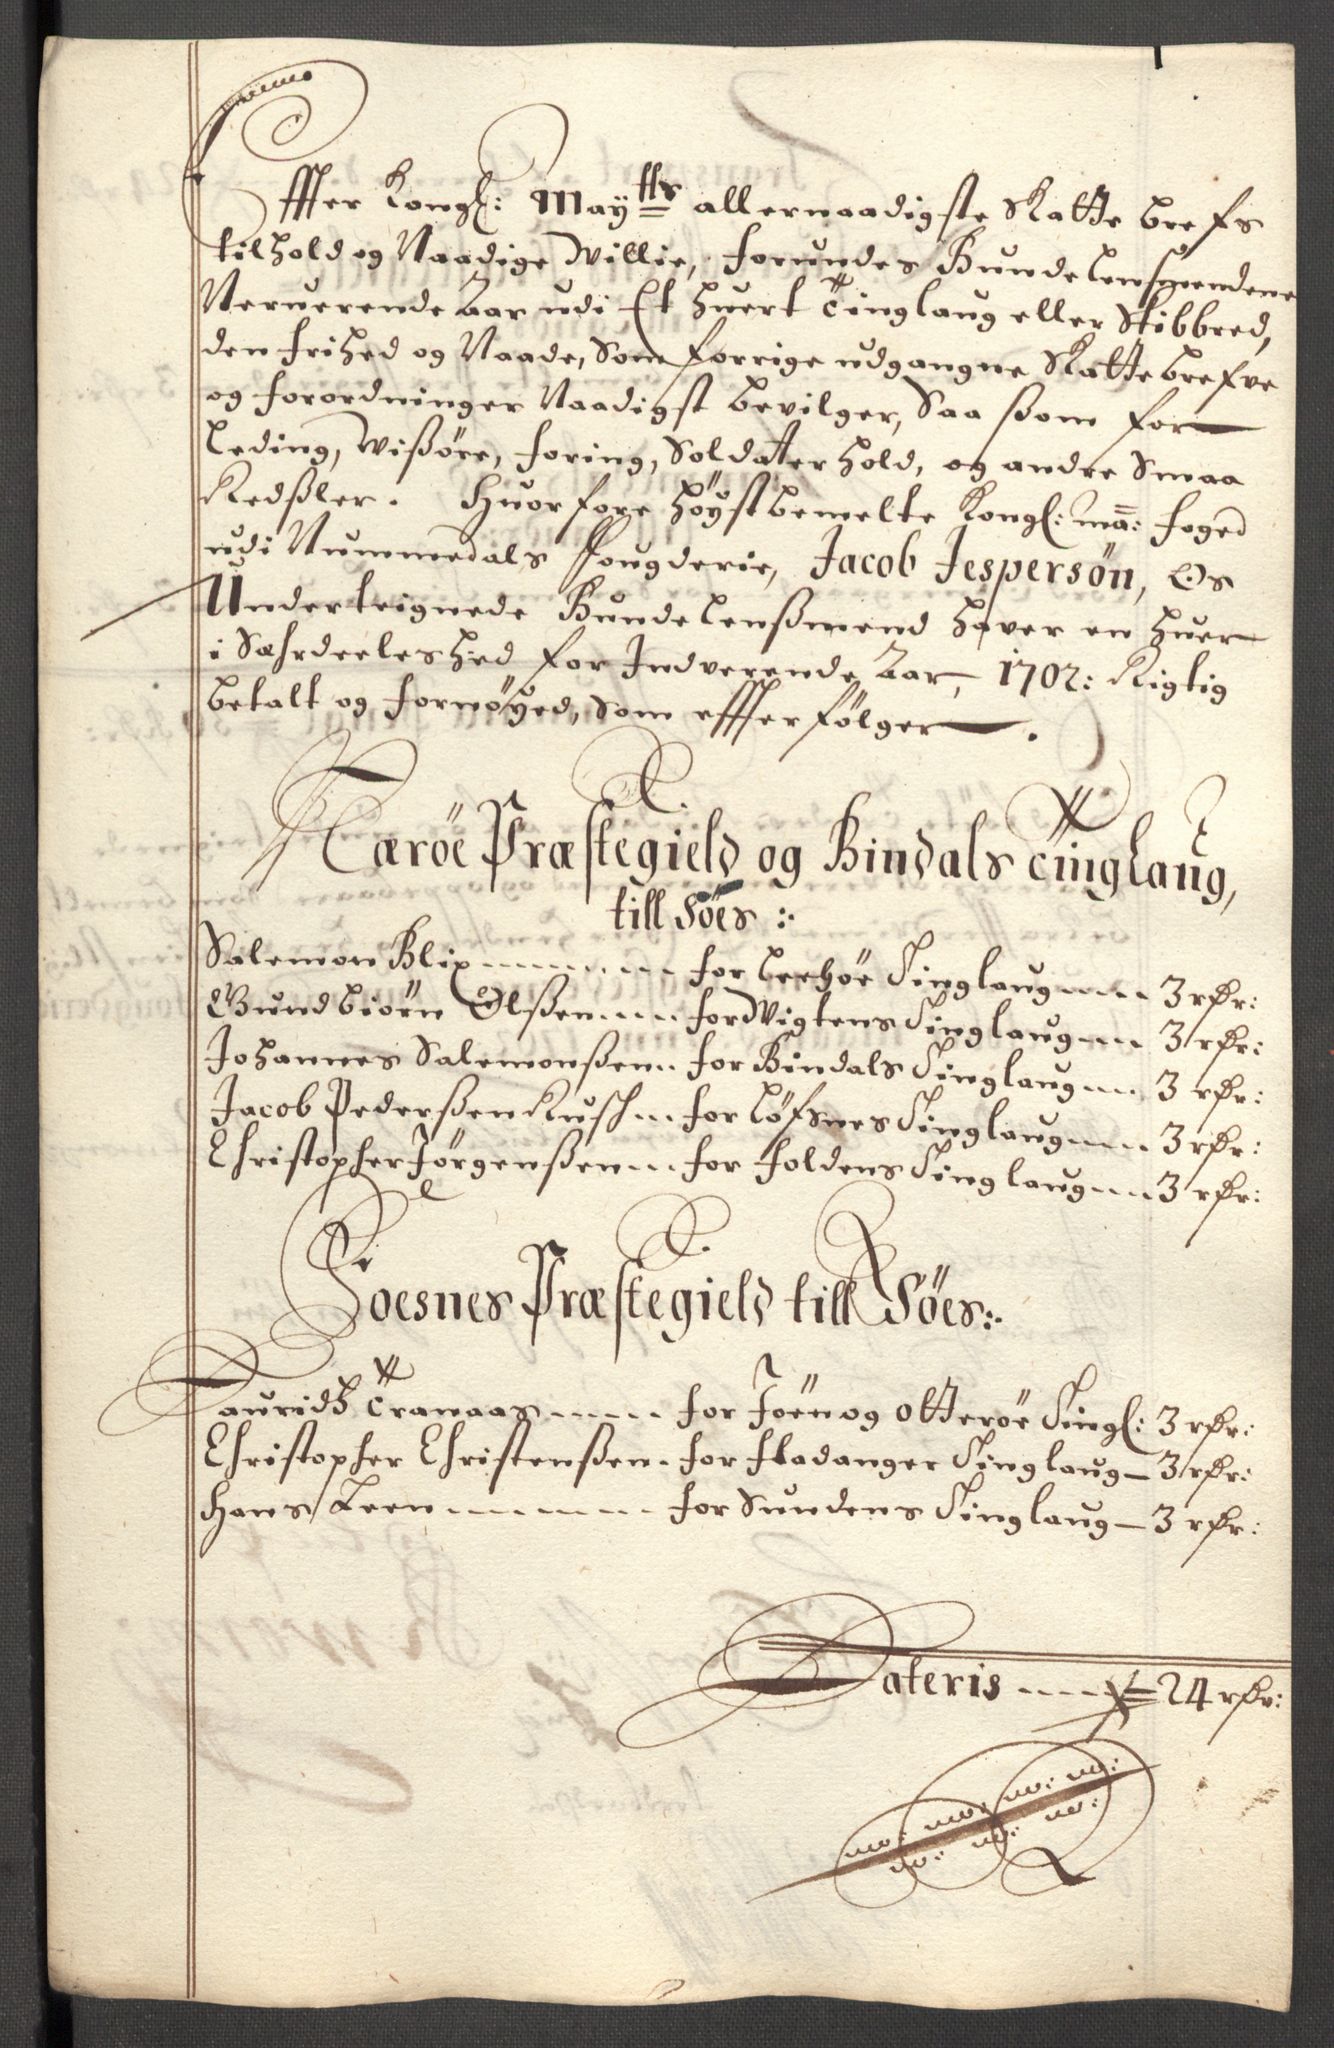 Effter Kongl: Maytts allernaadigste Skatte brefs
tilhold og Naadige Willie, forundes Bunde Lensmendene
Nerverende Aar udi Et huert Tinglaug eller Skibbred,
den frihed og Naade, Som forrige udgangne Skatte brefve
og forordninger Naadigst bevilger, Saa som for
Leding, Wisøre, foring, Soldaterhold, og andre Smaa
Redsler. Huorfore høystbemelte Kongl: Mã: foged
udi Nummedals fougderie, Jacob Jespersøn, Os
Underteignede Bunde Lensmend haver en huer
i Særdeeleshed for Indverende Aar, 1702: Rigtig
betalt og fornøyed, som effterfølger.
Nærøe Præstegield og Bindals Tinglaug,
till Søes:
Salemon Blix for Leehøe Tinglaug 3 rdr:
Gundbiørn Olssen for Wigtens Tinglaug 3 rdr:
Johannes Salemonssen for Bindals Tinglaug 3 rdr:
Jacob Pederssen Kusk for Løfsnes Tinglaug 3 rdr:
Christopher Jørgenssen for Foldens Tinglaug 3 rdr:
Foesnes Præstegield till Søes:
Lauridtz Tranaas for Jøen og Otterøe Tingl: 3 rdr:
Christopher Christenssen for Fladanger Tinglaug 3 rdr:
Hans Leen for Sundens Tinglaug 3 rdr:
Lateris 24 rdr: